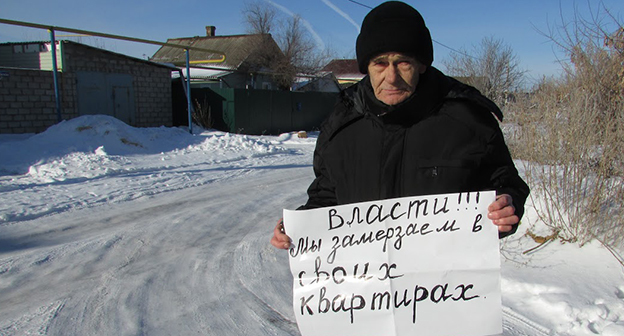 Власти!!!
Мы замерзаем в
своих
квартирах.